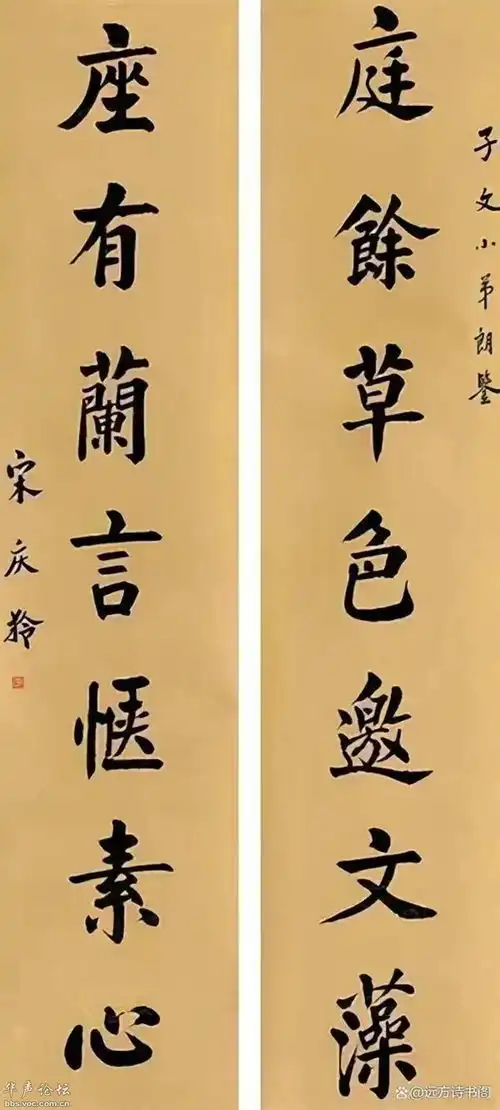 子文小弟朗鑒
庭餘草色邀文藻
座有蘭言愜素心
宋庆龄
华声论坛
bbs.voc.com.cn
@远方诗书阁